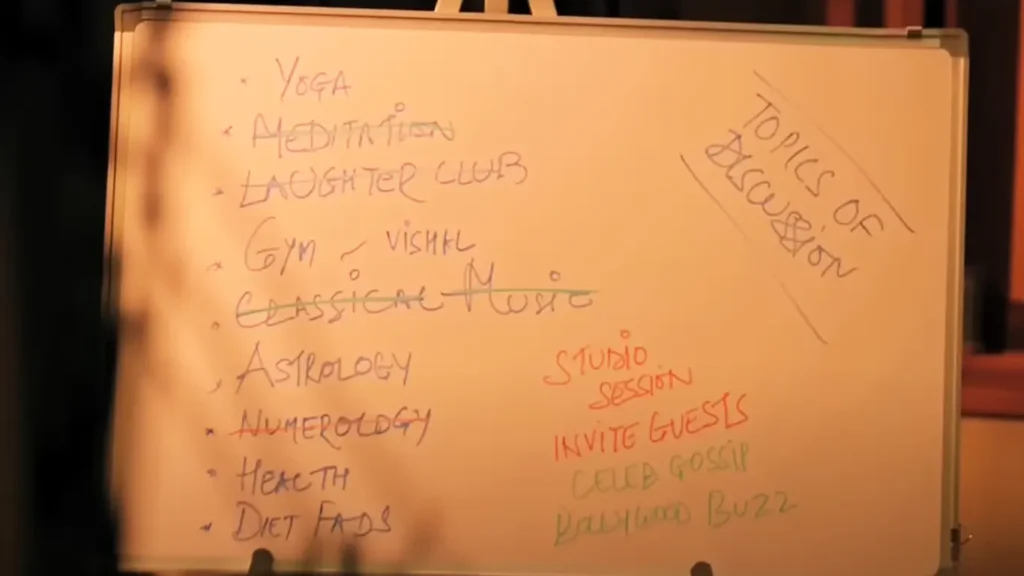 TOPICS OF
DISCUSSION
• YOGA
• MEDITATION
• LAUGHTER CLUB
• GYM - VISHAL
• CLASSICAL MUSIC
• ASTROLOGY
• NUMEROLOGY
• HEALTH
• DIET FADS
STUDIO
SESSION
INVITE GUESTS
CELEB GOSSIP
BOLLYWOOD BUZZ